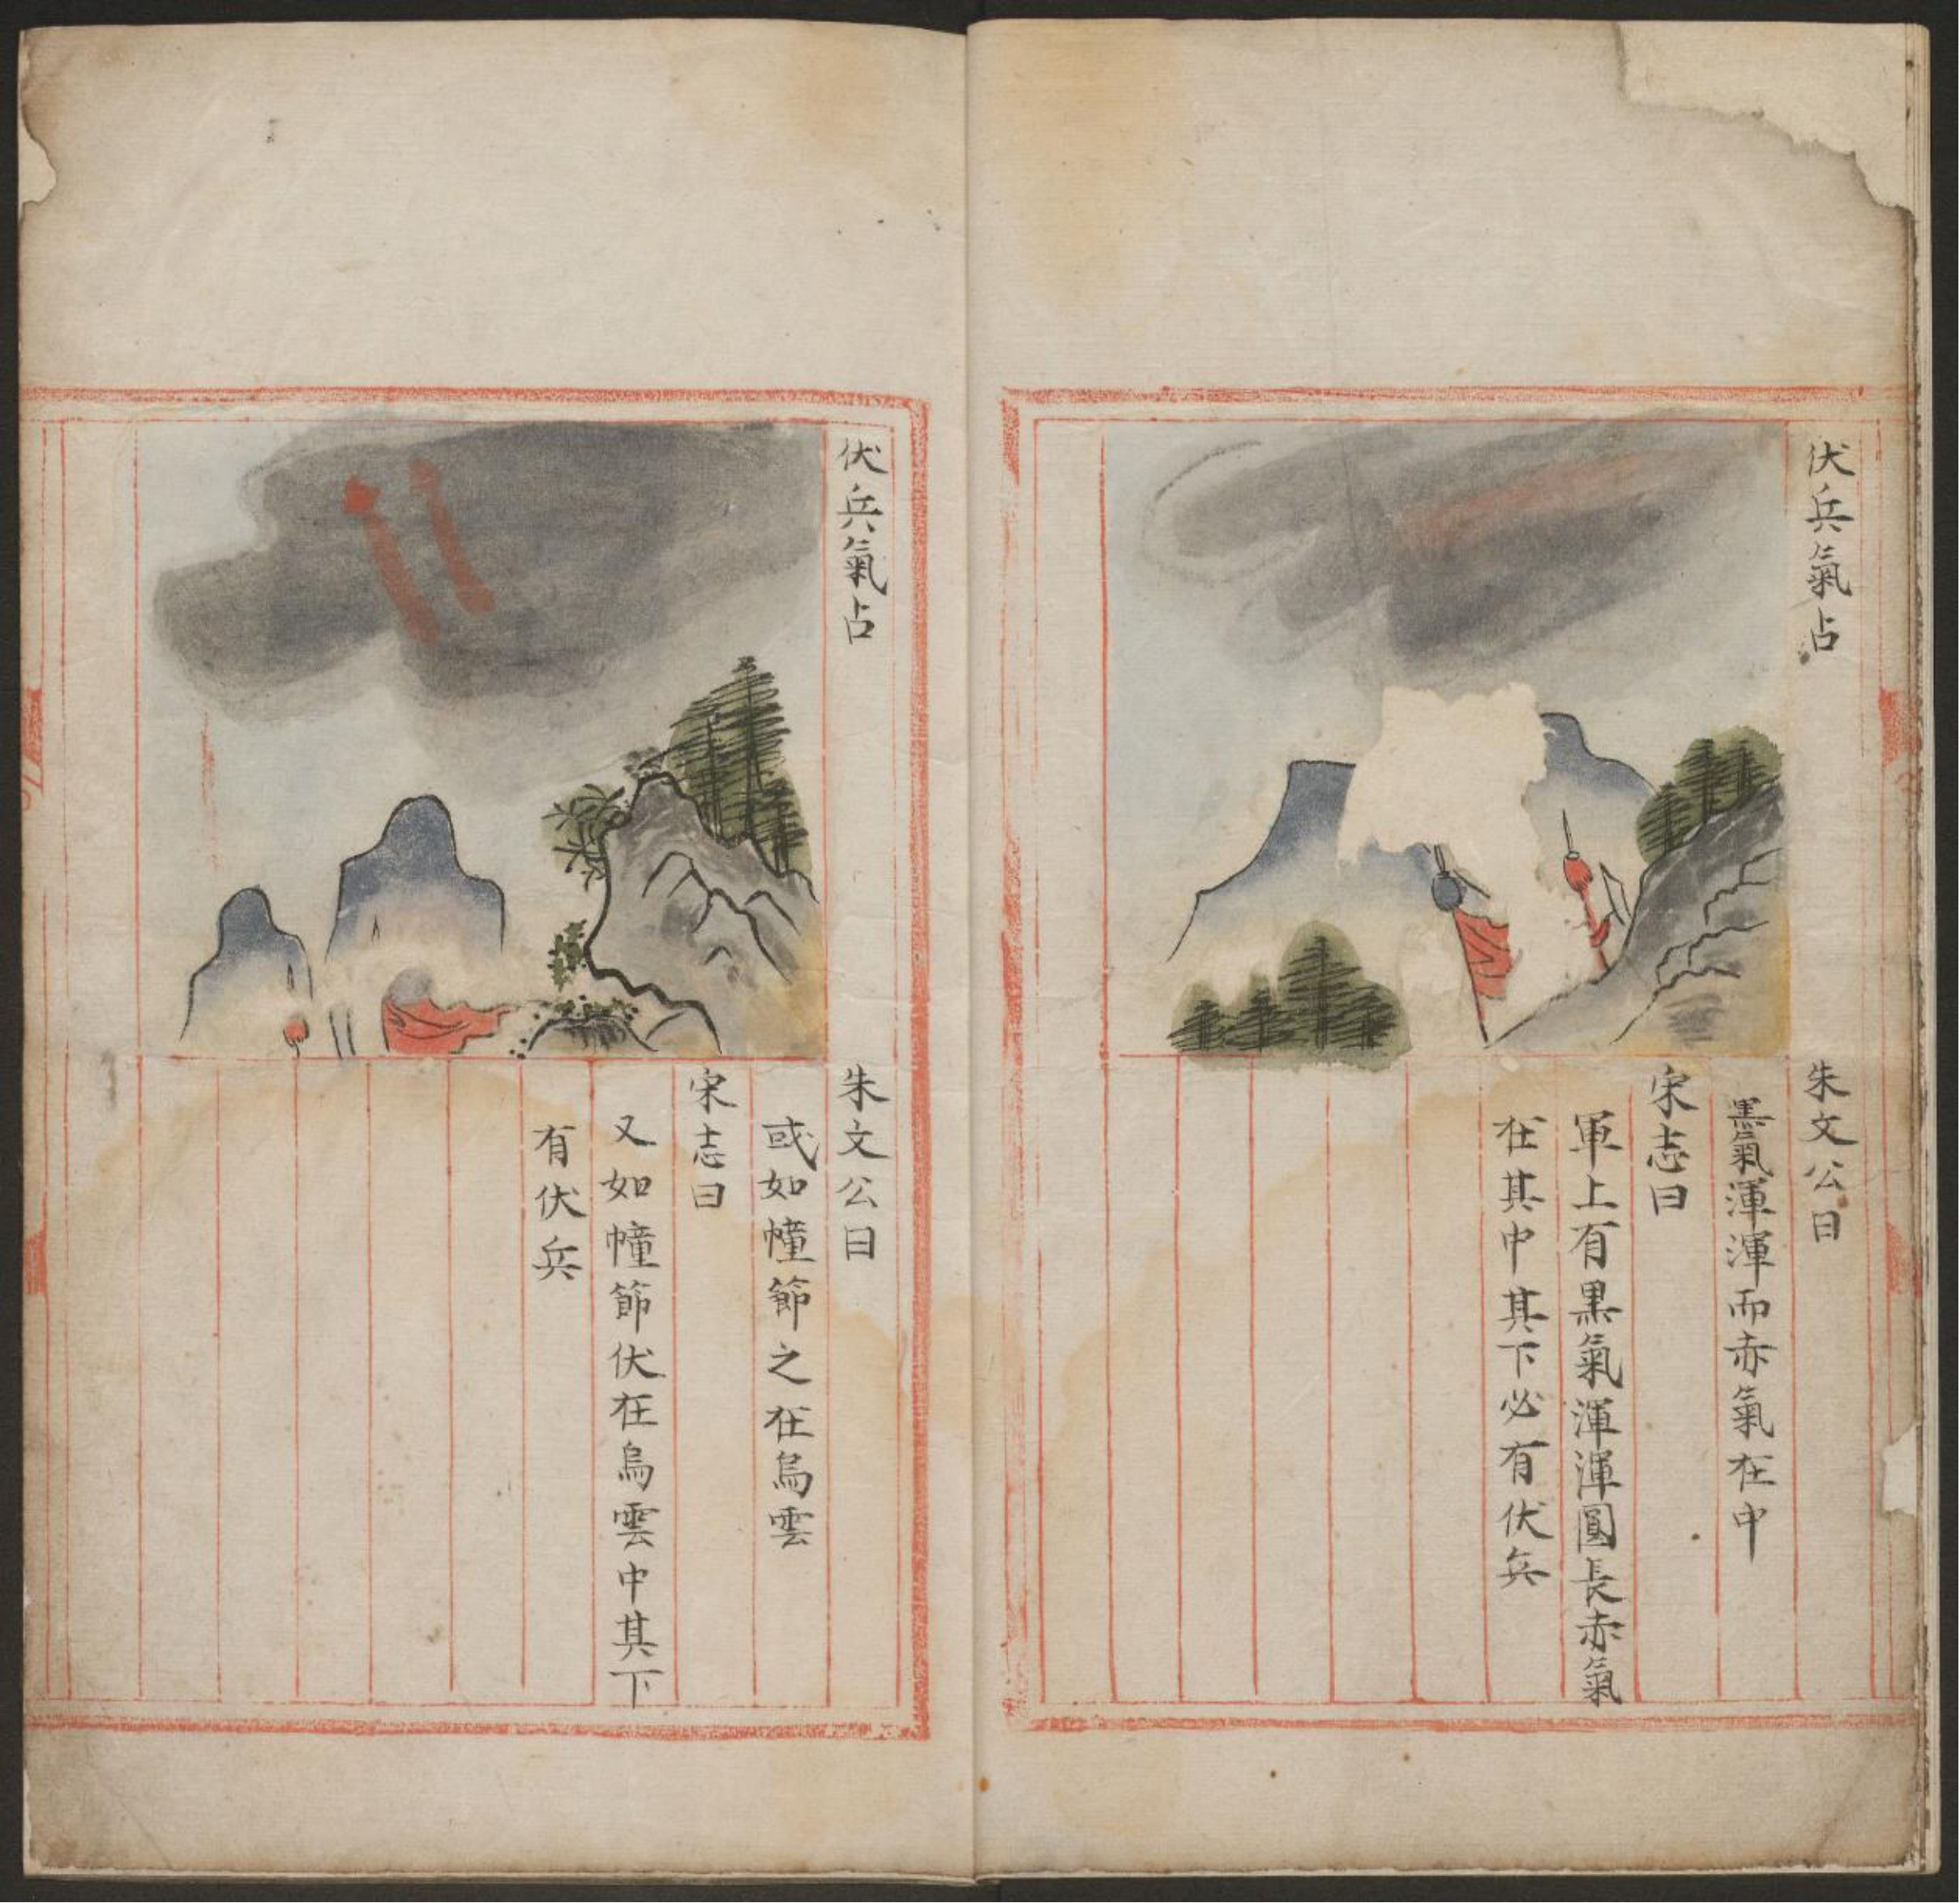 伏兵氣占
朱文公曰
黑氣渾渾而赤氣在中
宋志曰
軍上有黒氣渾渾圓長赤氣
在其中其下必有伏兵
伏兵氣占
朱文公曰
或如幢節之在烏雲
宋志曰
又如幢節伏在烏雲中其下
有伏兵